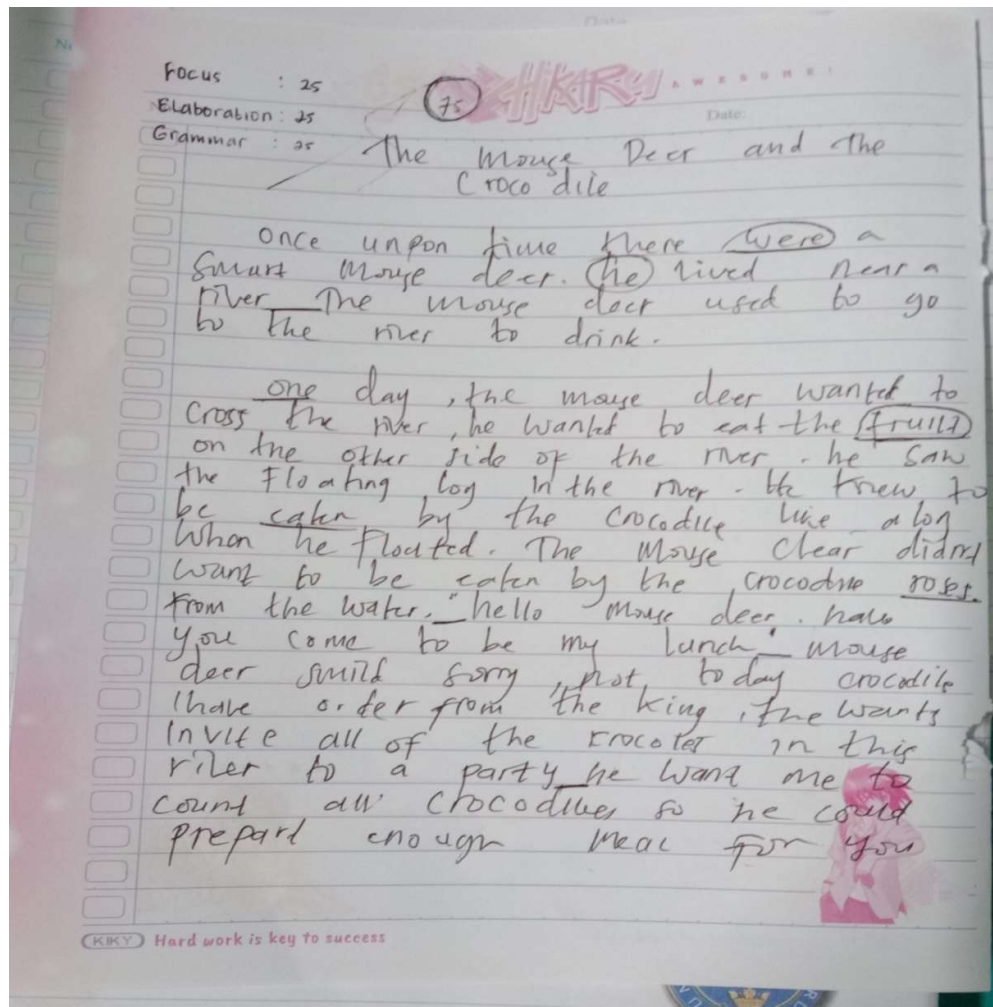 Focus : 25
Elaboration : 25
Grammar : 25
75
HIKARU AWESOME!
Date:
The Mouse Deer and the
Crocodile
once unpon time there were a
Smart Mouse deer. he lived near a
river The mouse deer used to go
to the river to drink.
one day , the mouse deer wanted to
cross the river , he wanted to eat the fruild
on the other side of the river . he saw
the Floating log in the river . He knew to
be eaten by the crocodile like a log
When he floated. The Mouse Clear didnt
want to be eaten by the crocodile roses.
from the water. "hello mouse deer . have
you come to be my lunch" mouse
deer smild sorry , not today crocodile
I have order from the king , the wants
Invite all of the krocoler in this
river to a party he want me to
count all crocodiles so he could
prepart enough meal for you
KIKY Hard work is key to success